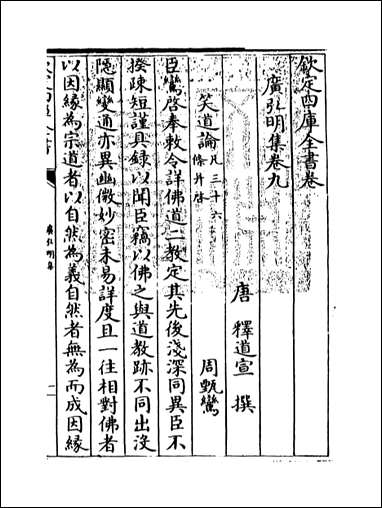 欽定四庫全書卷
廣弘明集卷九
唐 釋道宣 撰
笑道論 凡三十六條并啓 周甄鸞
臣鸞啓奉敕令詳佛道二教定其先後淺深同異臣不
揆疎短謹具録以聞臣竊以佛之與道教跡不同出沒
隠顯變通亦異幽微妙密未易詳度且一往相對佛者
以因縁為宗道者以自然為義自然者無為而成因縁
廣弘明集